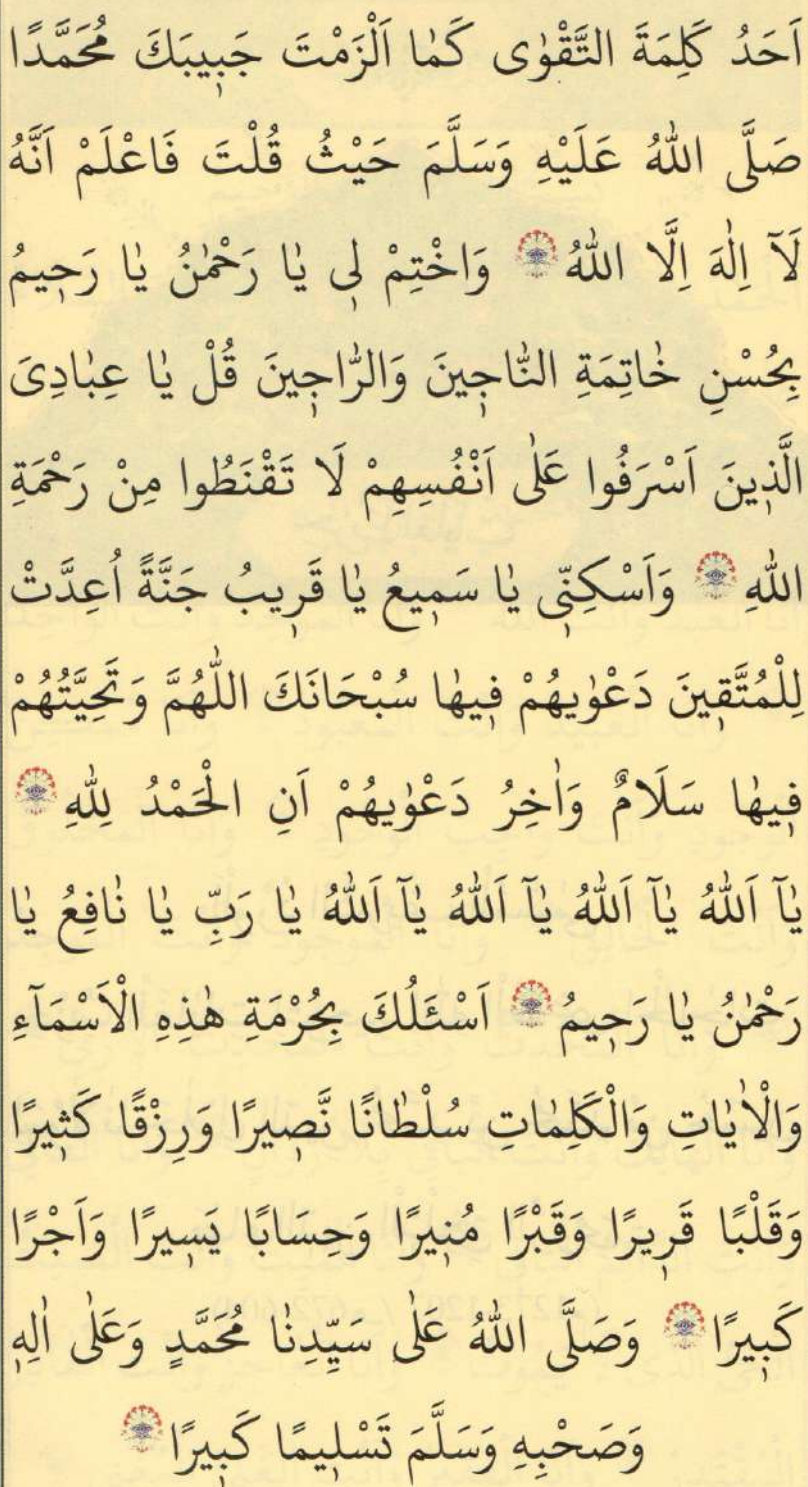 اَحَدُ كَلِمَةَ التَّقْوٰى كَمٰا اَلْزَمْتَ حَبِيبَكَ مُحَمَّدًا
صَلَّى اللّٰهُ عَلَيْهِ وَسَلَّمَ حَيْثُ قُلْتَ فَاعْلَمْ اَنَّهُ
لَآ اِلٰهَ اِلَّا اللّٰهُ ۞ وَاخْتِمْ لٖى يٰا رَحْمٰنُ يٰا رَحٖيمُ
بِحُسْنِ خٰاتِمَةِ النّٰاجٖينَ وَالرّٰاجٖينَ قُلْ يٰا عِبٰادِىَ
الَّذٖينَ اَسْرَفُوا عَلٰى اَنْفُسِهِمْ لَا تَقْنَطُوا مِنْ رَحْمَةِ
اللّٰهِ ۞ وَاَسْكِنّٖى يٰا سَمٖيعُ يٰا قَرٖيبُ جَنَّةً اُعِدَّتْ
لِلْمُتَّقٖينَ دَعْوٰيهُمْ فٖيهٰا سُبْحَانَكَ اللّٰهُمَّ وَتَحِيَّتُهُمْ
فٖيهٰا سَلَامٌ وَاٰخِرُ دَعْوٰيهُمْ اَنِ الْحَمْدُ لِلّٰهِ ۞
يٰآ اَللّٰهُ يٰآ اَللّٰهُ يٰآ اَللّٰهُ يٰآ اَللّٰهُ يٰا رَبِّ يٰا نٰافِعُ يٰا
رَحْمٰنُ يٰا رَحٖيمُ ۞ اَسْئَلُكَ بِحُرْمَةِ هٰذِهِ الْاَسْمَآءِ
وَالْاٰيٰاتِ وَالْكَلِمٰاتِ سُلْطٰانًا نَّصٖيرًا وَرِزْقًا كَثٖيرًا
وَقَلْبًا قَرٖيرًا وَقَبْرًا مُنٖيرًا وَحِسَابًا يَسٖيرًا وَاَجْرًا
كَبٖيرًا ۞ وَصَلَّى اللّٰهُ عَلٰى سَيِّدِنٰا مُحَمَّدٍ وَعَلٰى اٰلِهٖ
وَصَحْبِهِ وَسَلَّمَ تَسْلٖيمًا كَبٖيرًا ۞